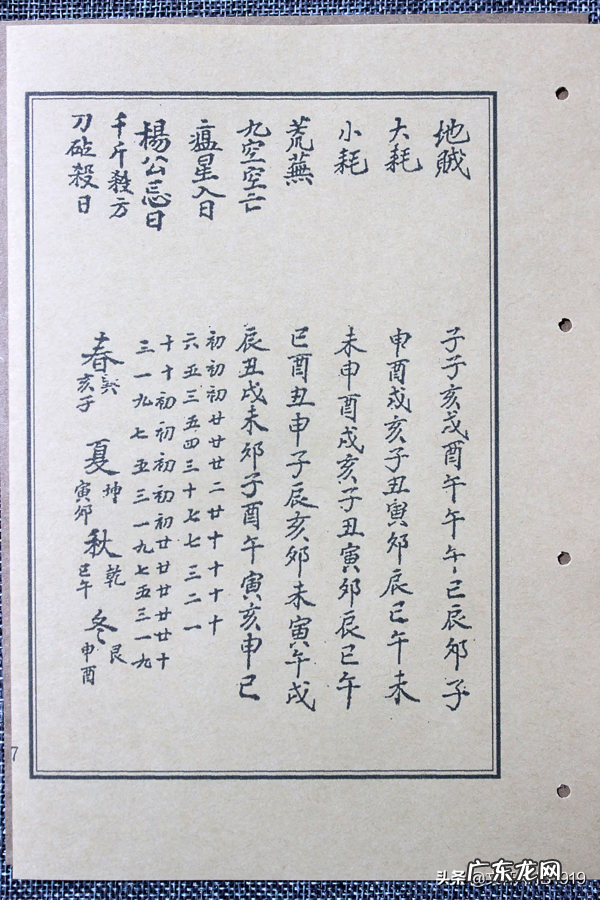 地賊 子子亥戌酉午午午巳辰卯子
大耗 申酉戌亥子丑寅卯辰巳午未
小耗 未申酉戌亥子丑寅卯辰巳午
荒蕪 巳酉丑申子辰亥卯未寅午戌
九空空亡 辰丑戌未卯子酉午寅亥申巳
瘟星入日 初初初廿廿廿二廿十十十十
六五三五四三十七七三二一
楊公忌日 十十初初初初初廿廿廿廿廿十
三一九七五三一九七五三一九
千斤殺方 春巽 夏坤 秋乾 冬艮
刀砧殺日 亥子 寅卯 巳午 申酉
7
头条
广东龙网